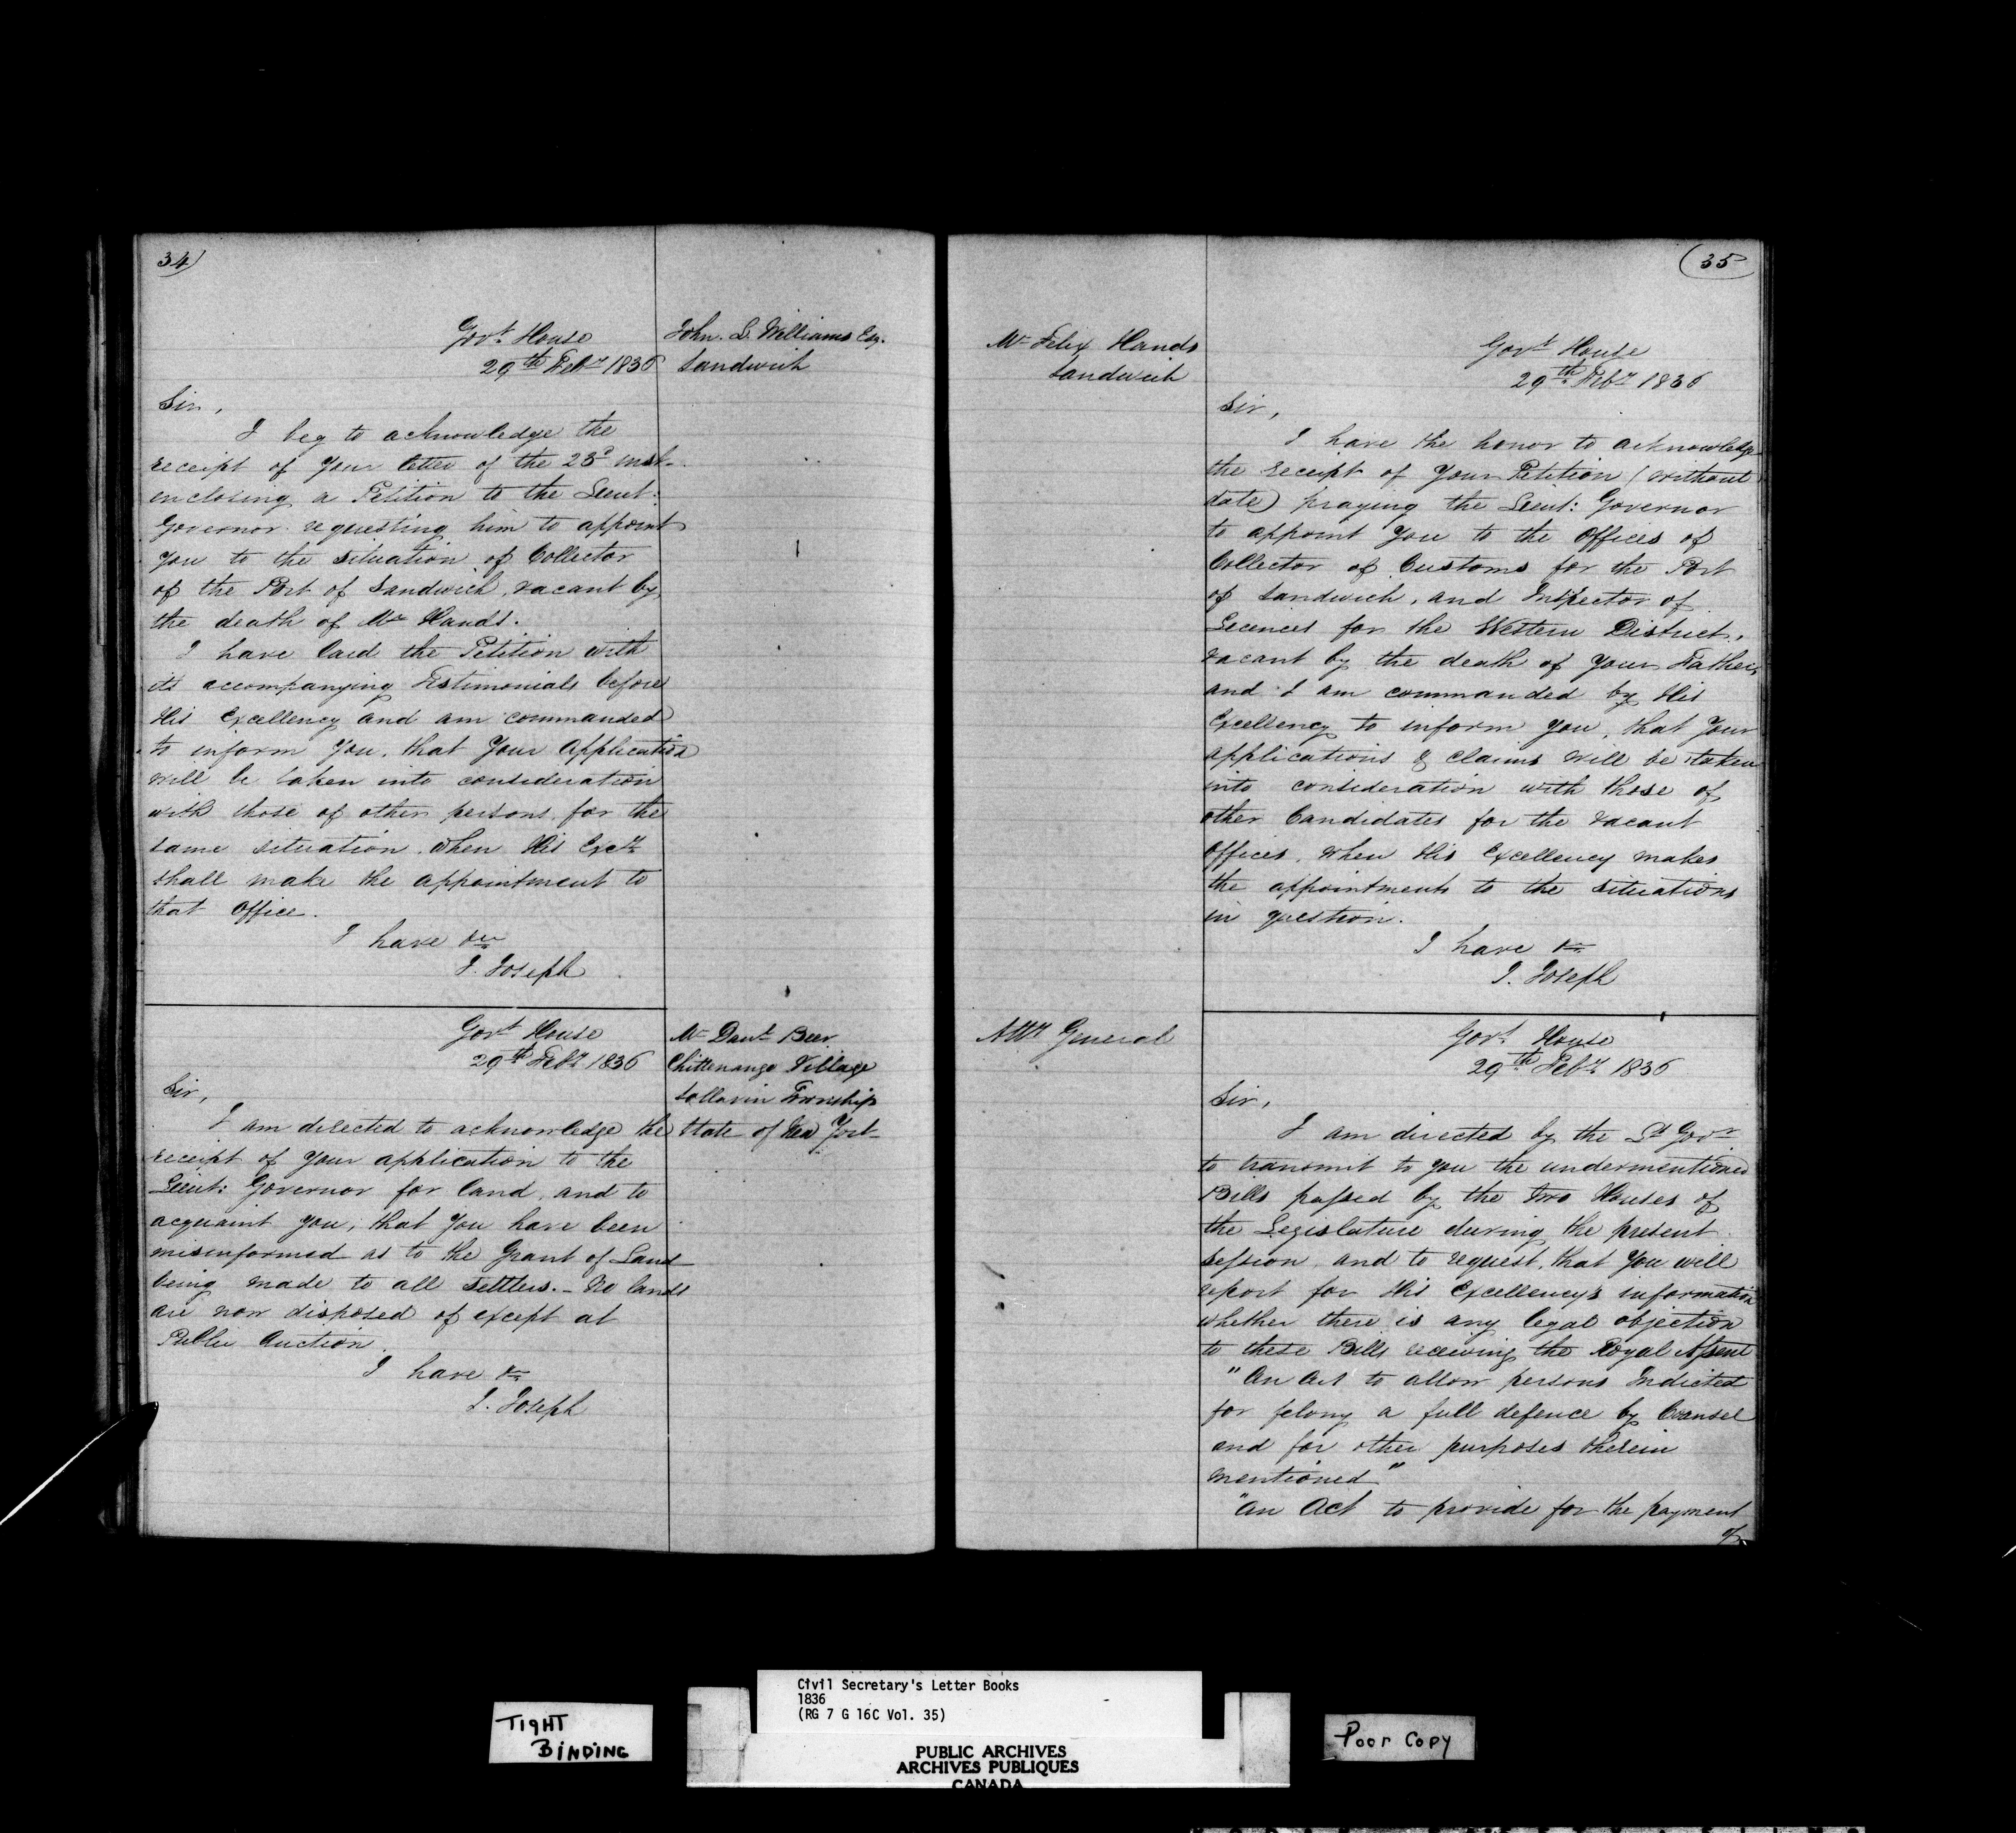 34)
Govt. House
29th Feby 1836
John. L. Williams Esq.
Sandwich
Sir,
I beg to acknowledge the
receipt of Your letter of the 23d inst.
enclosing a Petition to the Lieut:
Governor requesting him to appoint
You to the situation of Collector
of the Port of Sandwich, vacant by
the death of Mr Hands.
I have laid the Petition with
its accompanying Testimonials before
His Excellency and am commanded
to inform You, that Your Application
will be taken into consideration
with those of other persons for the
same situation when His Excy
shall make the appointment to
that Office.
I have &c
J. Joseph
Govt House
29th Feby 1836
Mr Danl Beer
Chittenango Village
Sullavin Township
State of New York
Sir,
I am directed to acknowledge the
receipt of Your application to the
Lieut: Governor for land, and to
acquaint You, that You have been
misinformed as to the Grant of Land
being made to all settlers. - No lands
are now disposed of except at
Public Auction.
I have &c
J. Joseph
(35
Mr Felix Hands
Sandwich
Govt House
29th Feby 1836
Sir,
I have the honor to acknowledge
the receipt of Your Petition (without
date) praying the Lieut: Governor
to appoint You to the Offices of
Collector of Customs for the Port
of Sandwich, and Inspector of
Licences for the Western District,
vacant by the death of Your Father,
and I am commanded by His
Excellency to inform You, that Your
applications & claims will be taken
into consideration with those of
other Candidates for the vacant
Offices, when His Excellency makes
the appointments to the situations
in question.
I have &c
J. Joseph
Atty General
Govt House
29th Feby 1836
Sir,
I am directed by the Lt Govr
to transmit to You the undermentioned
Bills passed by the two Houses of
the Legislature during the present
session, and to request, that You will
report for His Excellency's information
whether there is any legal objection
to these Bills receiving the Royal Assent
"An Act to allow persons Indicted
for felony a full defence by Counsel
and for other purposes therein
mentioned"
"An Act to provide for the payment
of
Civil Secretary's Letter Books
1836
(RG 7 G 16C Vol. 35)
TIGHT
BINDING
PUBLIC ARCHIVES
ARCHIVES PUBLIQUES
CANADA
Poor Copy